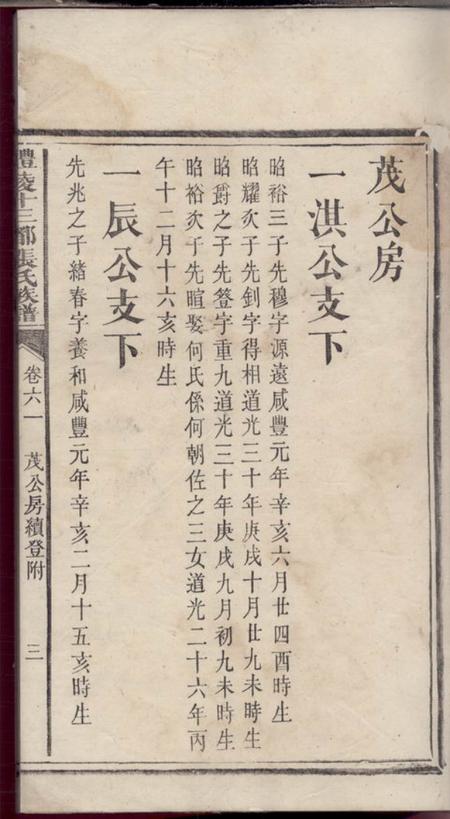 茂公房
一淇公支下
昭裕三子先穆字源遠咸豐元年辛亥六月廿四酉時生
昭耀次子先釗字得相道光三十年庚戌十月廿九未時生
昭爵之子先簦字重九道光三十年庚戌九月初九未時生
昭裕次子先暄娶何氏係何朝佐之三女道光二十六年丙
午十二月十六亥時生
一辰公支下
先兆之子緒春字養和咸豐元年辛亥二月十五亥時生
醴陵十三都張氏族譜
卷六一
茂公房續登附
三